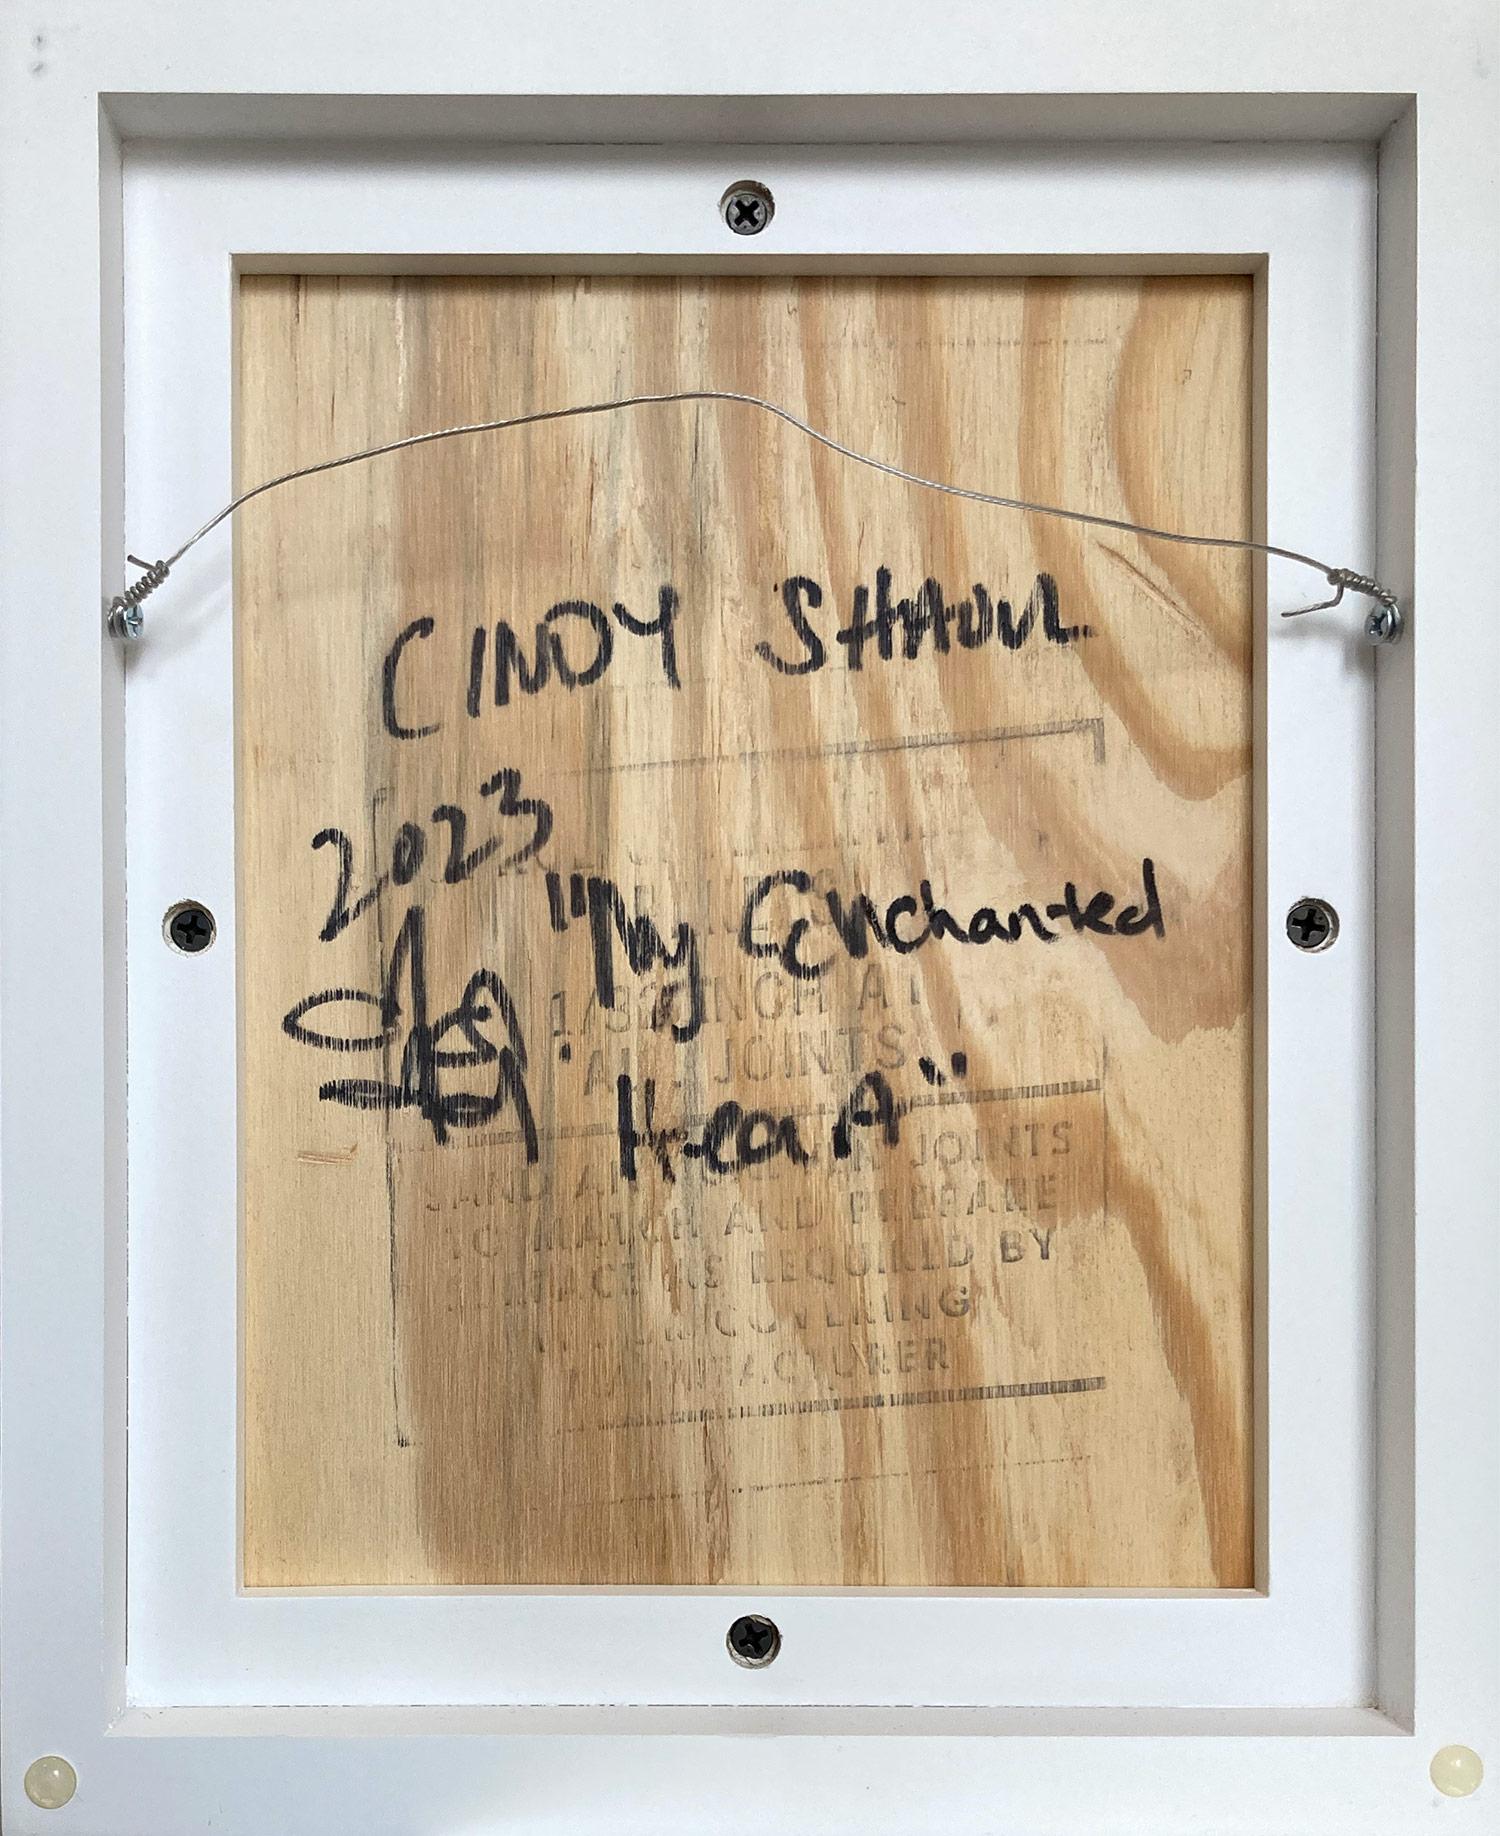 CINDY SHAOUL
2023
"My Enchanted
Heart"
1/32 INCH AT
ALL JOINTS
SAND AND JOINTS
TO MATCH AND PREPARE
SURFACE AS REQUIRED BY
COVERING
MANUFACTURER